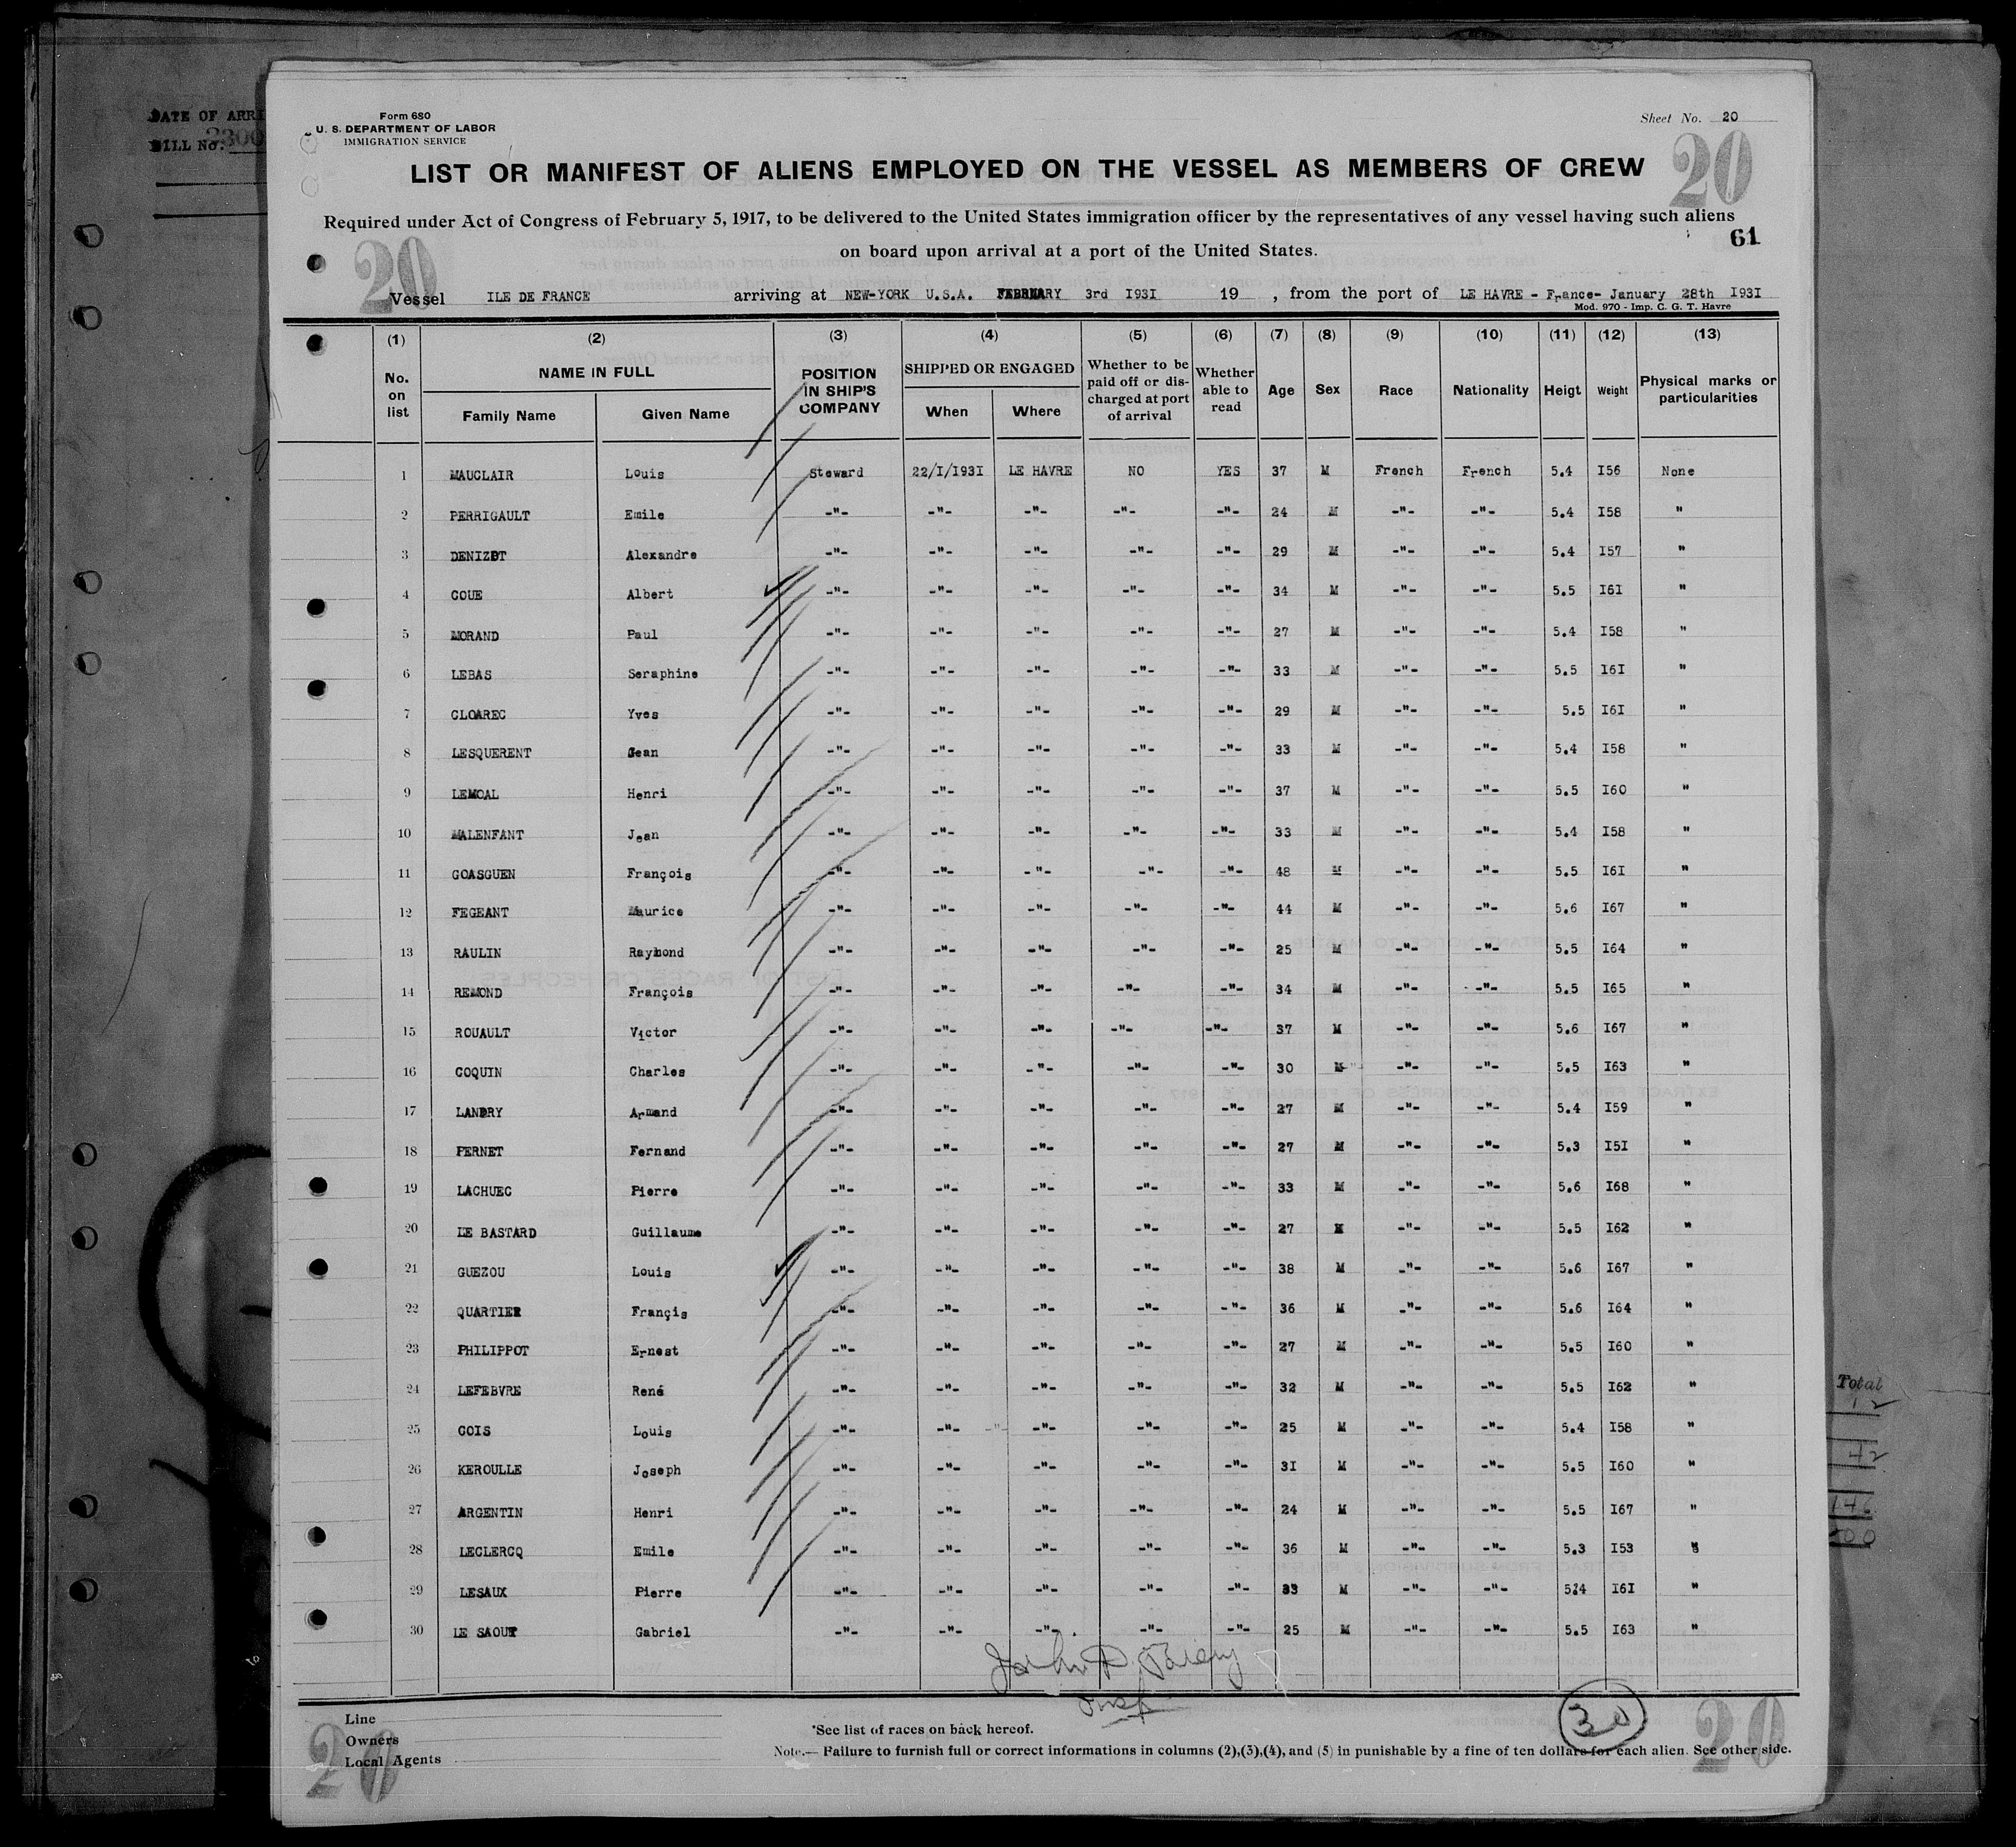 DATE OF ARRI
BILL No. 3300
Form 680
U. S. DEPARTMENT OF LABOR
IMMIGRATION SERVICE
Sheet No. 20
20
LIST OR MANIFEST OF ALIENS EMPLOYED ON THE VESSEL AS MEMBERS OF CREW
Required under Act of Congress of February 5, 1917, to be delivered to the United States immigration officer by the representatives of any vessel having such aliens
on board upon arrival at a port of the United States.
61
20
Vessel ILE DE FRANCE arriving at NEW-YORK U.S.A. FEBRUARY 3rd I93I 19 , from the port of LE HAVRE - France- January 28th I93I
Mod. 970 - Imp. C. G. T. Havre
(1) (2) (3) (4) (5) (6) (7) (8) (9) (10) (11) (12) (13)
No. on list NAME IN FULL Family Name Given Name POSITION IN SHIP'S COMPANY SHIPPED OR ENGAGED When Where Whether to be paid off or discharged at port of arrival Whether able to read Age Sex Race Nationality Heigt Weight Physical marks or particularities
1 MAUCLAIR Louis Steward 22/I/I93I LE HAVRE NO YES 37 M French French 5.4 I56 None
2 PERRIGAULT Emile -"- -"- -"- -"- -"- 24 M -"- -"- 5.4 I58 "
3 DENIZOT Alexandre -"- -"- -"- -"- -"- 29 M -"- -"- 5.4 I57 "
4 COUE Albert -"- -"- -"- -"- -"- 34 M -"- -"- 5.5 I6I "
5 MORAND Paul -"- -"- -"- -"- -"- 27 M -"- -"- 5.4 I58 "
6 LEBAS Seraphine -"- -"- -"- -"- -"- 33 M -"- -"- 5.5 I6I "
7 CLOAREC Yves -"- -"- -"- -"- -"- 29 M -"- -"- 5.5 I6I "
8 LESQUERENT Jean -"- -"- -"- -"- -"- 33 M -"- -"- 5.4 I58 "
9 LEMOAL Henri -"- -"- -"- -"- -"- 37 M -"- -"- 5.5 I60 "
10 MALENFANT Jean -"- -"- -"- -"- -"- 33 M -"- -"- 5.4 I58 "
11 GOASGUEN François -"- -"- -"- -"- -"- 48 M -"- -"- 5.5 I6I "
12 FEGEANT Maurice -"- -"- -"- -"- -"- 44 M -"- -"- 5.6 I67 "
13 RAULIN Raymond -"- -"- -"- -"- -"- 25 M -"- -"- 5.5 I64 "
14 REMOND François -"- -"- -"- -"- -"- 34 M -"- -"- 5.5 I65 "
15 ROUAULT Victor -"- -"- -"- -"- -"- 37 M -"- -"- 5.6 I67 "
16 COQUIN Charles -"- -"- -"- -"- -"- 30 M -"- -"- 5.5 I63 "
17 LANDRY Armand -"- -"- -"- -"- -"- 27 M -"- -"- 5.4 I59 "
18 PERNET Fernand -"- -"- -"- -"- -"- 27 M -"- -"- 5.3 I5I "
19 LACHUEC Pierre -"- -"- -"- -"- -"- 33 M -"- -"- 5.6 I68 "
20 LE BASTARD Guillaume -"- -"- -"- -"- -"- 27 M -"- -"- 5.5 I62 "
21 GUEZOU Louis -"- -"- -"- -"- -"- 38 M -"- -"- 5.6 I67 "
22 QUARTIER Françis -"- -"- -"- -"- -"- 36 M -"- -"- 5.6 I64 "
23 PHILIPPOT Ernest -"- -"- -"- -"- -"- 27 M -"- -"- 5.5 I60 "
24 LEFEBVRE René -"- -"- -"- -"- -"- 32 M -"- -"- 5.5 I62 "
25 GOIS Louis -"- -"- -"- -"- -"- 25 M -"- -"- 5.4 I58 "
26 KEROULLE Joseph -"- -"- -"- -"- -"- 3I M -"- -"- 5.5 I60 "
27 ARGENTIN Henri -"- -"- -"- -"- -"- 24 M -"- -"- 5.5 I67 "
28 LECLERCQ Emile -"- -"- -"- -"- -"- 36 M -"- -"- 5.3 I53 "
29 LESAUX Pierre -"- -"- -"- -"- -"- 33 M -"- -"- 5.4 I6I "
30 LE SAOUT Gabriel -"- -"- -"- -"- -"- 25 M -"- -"- 5.5 I63 "
Total
42
146
John
Insp
30
Line
Owners
Local Agents
*See list of races on back hereof.
Note.— Failure to furnish full or correct informations in columns (2),(3),(4), and (5) in punishable by a fine of ten dollars for each alien. See other side.
20
20